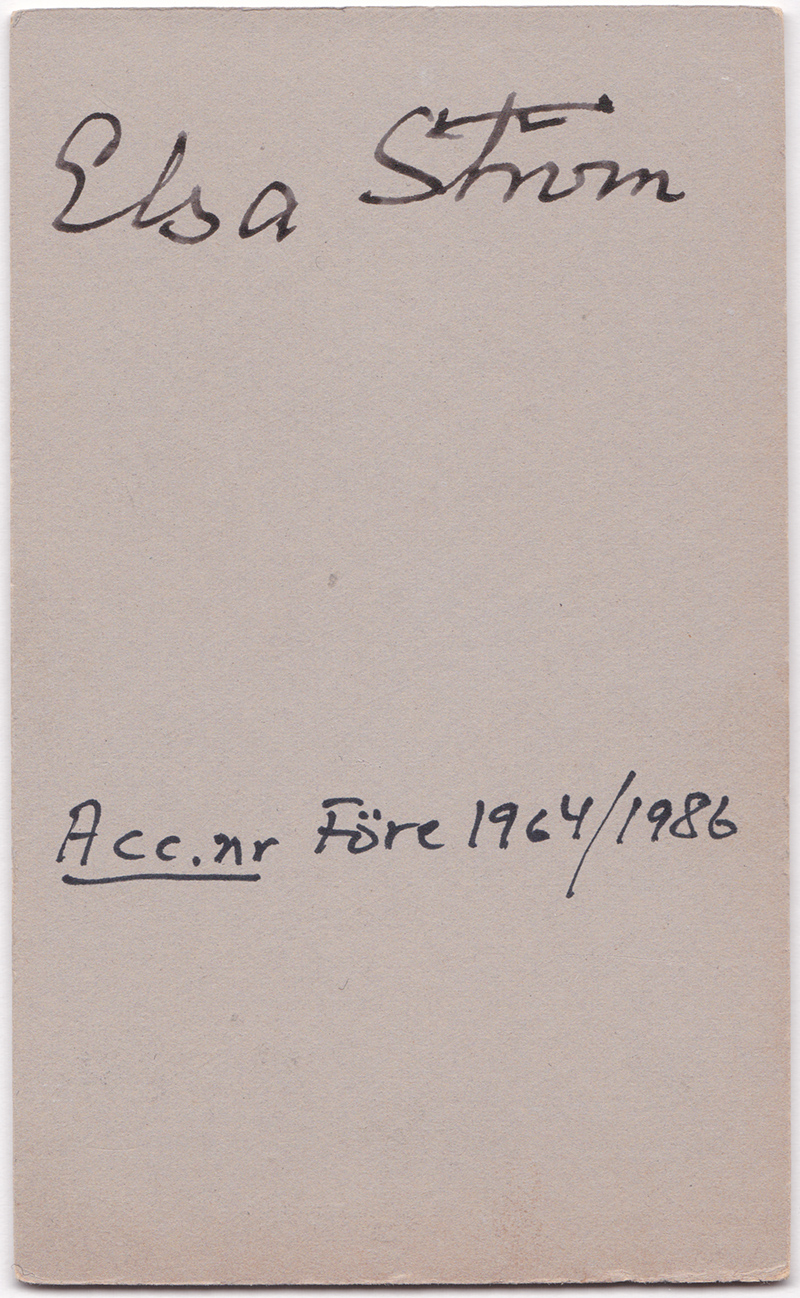 Elsa Ström
Acc.nr Före 1964/1986